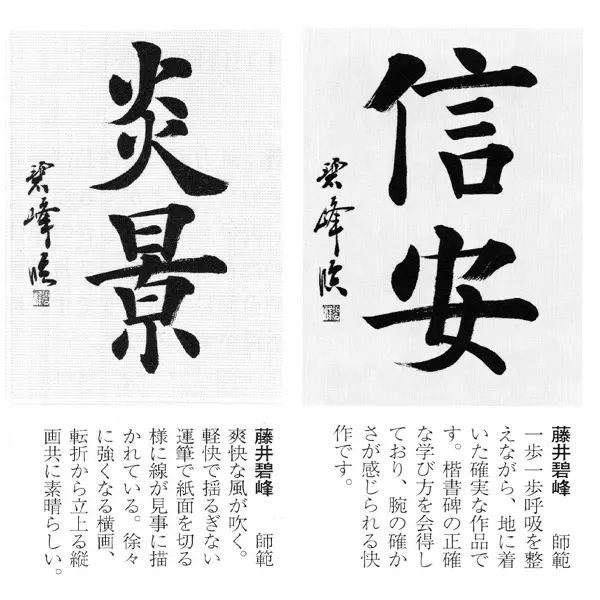 信安
碧峰臨
藤井碧峰　師範
一歩一歩呼吸を整
えながら、地に着
いた確実な作品で
す。楷書碑の正確
な学び方を会得し
ており、腕の確か
さが感じられる快
作です。
炎景
碧峰臨
藤井碧峰　師範
爽快な風が吹く。
軽快で揺るぎない
運筆で紙面を切る
様に線が見事に描
かれている。徐々
に強くなる横画、
転折から立上る縦
画共に素晴らしい。